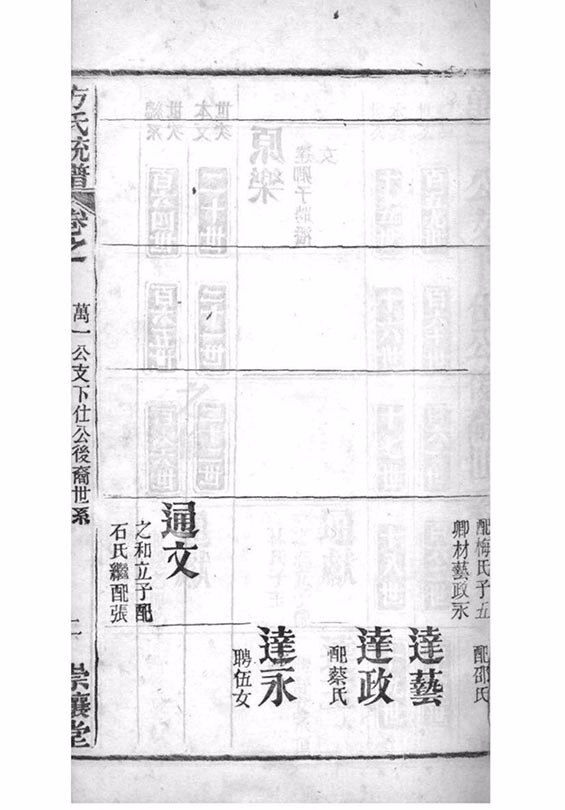 配梅氏子五
卿材藝政永
配邵氏
達藝
達政
配蔡氏
達永
聘伍女
通文
之和立子配
石氏繼配張
方氏統譜
卷之一
萬一公支下仕公後裔世系
二
崇讓堂